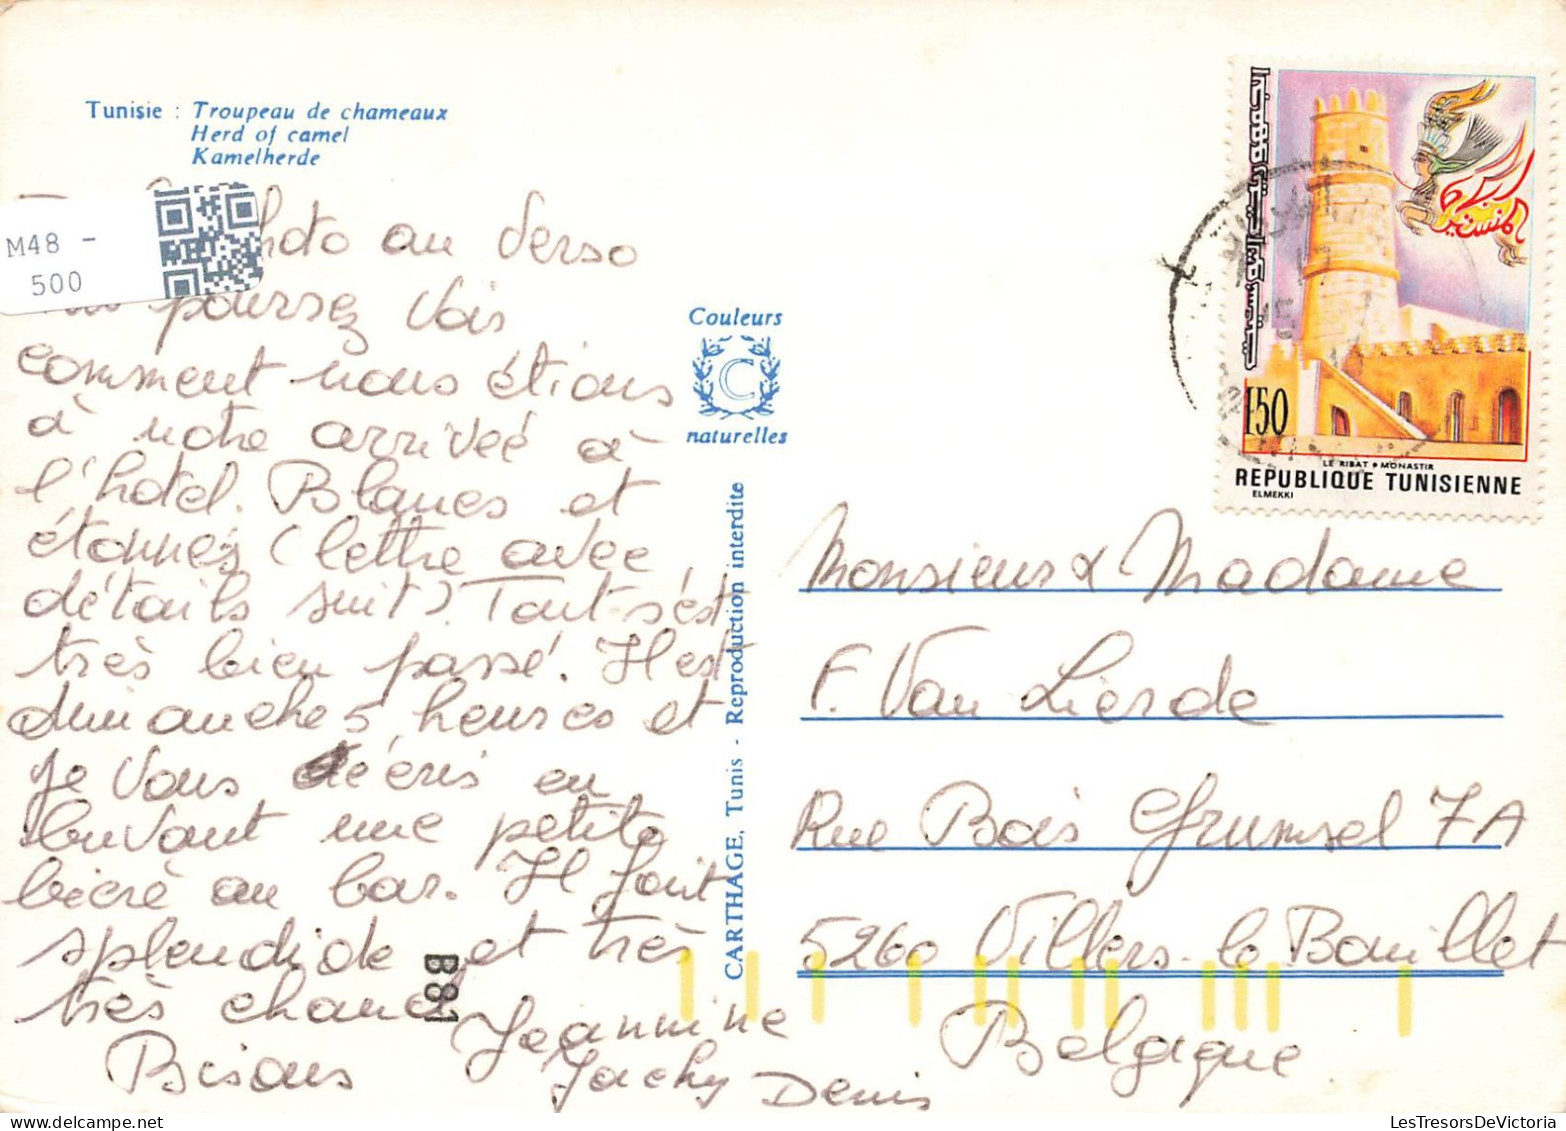 Tunisie : Troupeau de chameaux
Herd of camel
Kamelherde
M48 -
500
photo au verso
poursez Vois
comment nous étions
à notre arriveé à
l'hotel. Blancs et
étonnés (lettre avec
détails suit). Tout s'est
très bien passé. Il est
dimanche 5 heures et
je vous écris en
buvant une petite
bière au bar. Il fait
splendide et très
très chaud
Bisous
Jeannine
Jacky Denis
B81
Couleurs
C
naturelles
CARTHAGE, Tunis - Reproduction interdite
150
LE RIBAT MONASTIR
REPUBLIQUE TUNISIENNE
ELMEKKI
Monsieur & Madame
F. Van Lierde
Rue Bois Grumsel 7A
5260 Villers-le Bouillet
Belgique
LesTresorsDeVictoria.com